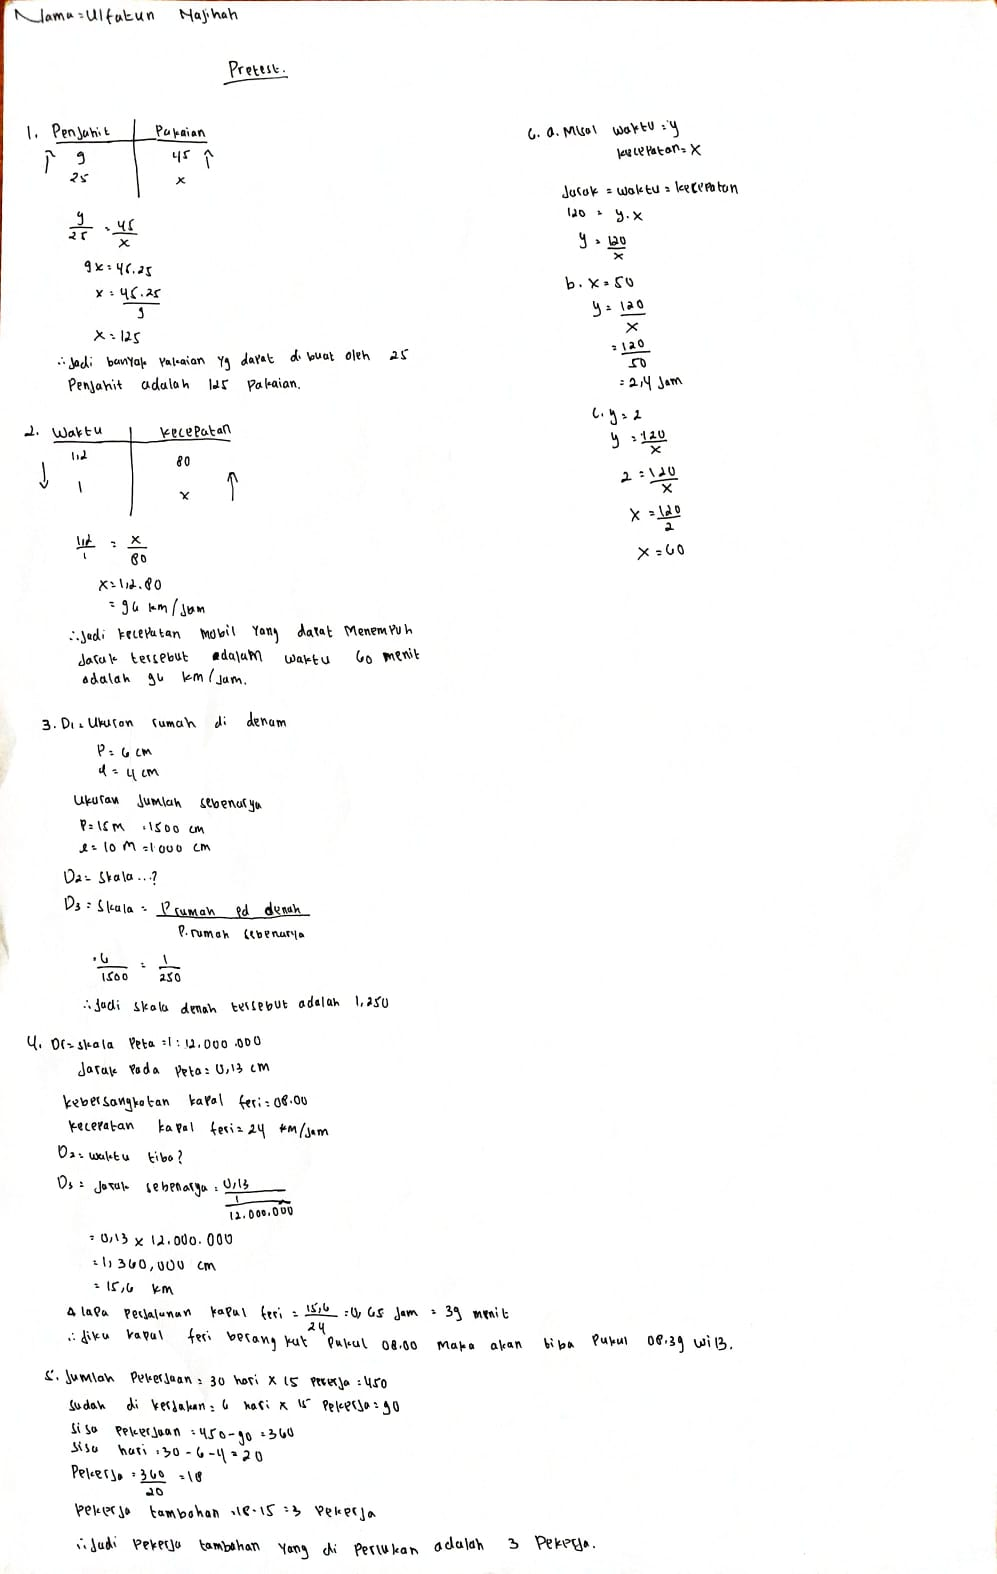 Nama = Ulfatun Najihah
Pretest.
1. Penjahit | Pakaian
↑ 9 | 45 ↑
25 | x
9/25 = 45/x
9x = 45.25
x = 45.25/9
x = 125
∴ Jadi banyak pakaian yg dapat di buat oleh 25
Penjahit adalah 125 pakaian.
2. Waktu | Kecepatan
↓ 1,2 | 80 ↑
1 | x
1,2/1 = x/80
x = 1,2.80
= 96 km/jam
∴ Jadi kecepatan mobil yang dapat Menempuh
Jarak tersebut dalam waktu 60 menit
adalah 96 km/jam.
3. D1 = Ukuran rumah di denam
P = 6 cm
l = 4 cm
Ukuran Jumlah sebenarya
P = 15 M = 1500 cm
l = 10 M = 1000 cm
D2 = Skala...?
D3 = Skala = P rumah pd denah / P. rumah sebenarya
= 6/1500 = 1/250
∴ Jadi skala denah tersebut adalah 1,250
4. D1 = skala Peta = 1 : 12.000.000
Jarak Pada Peta = 0,13 cm
kebersangkatan kapal feri = 08.00
kecepatan kapal feri = 24 km/jam
D2 = waktu tiba?
D3 = Jarak sebenarya = 0,13 / 1/12.000.000
= 0,13 x 12.000.000
= 1,360,000 cm
= 15,6 km
lapa perjalanan kapal feri = 15,6/24 = 0,65 Jam = 39 menit
∴ Jika kapal feri berangkut pukul 08.00 Maka akan biba Pukul 08.39 WIB.
5. Jumlah Pekerjaan = 30 hari x 15 pekerja = 450
Sudah di kerjakan = 6 hari x 15 Pekerja = 90
Sisa Pekerjaan = 450-90 = 360
Sisa hari = 30-6-4 = 20
Pekerja = 360/20 = 18
Pekerja tambahan = 18-15 = 3 Pekerja
∴ Jadi Pekerja tambahan Yang di Perlukan adalah 3 Pekerja.
6. a. Misal waktu = y
kecepatan = x
Jarak = waktu = kecepatan
120 = y.x
y = 120/x
b. x = 50
y = 120/x
= 120/50
= 2,4 Jam
c. y = 2
y = 120/x
2 = 120/x
x = 120/2
x = 60